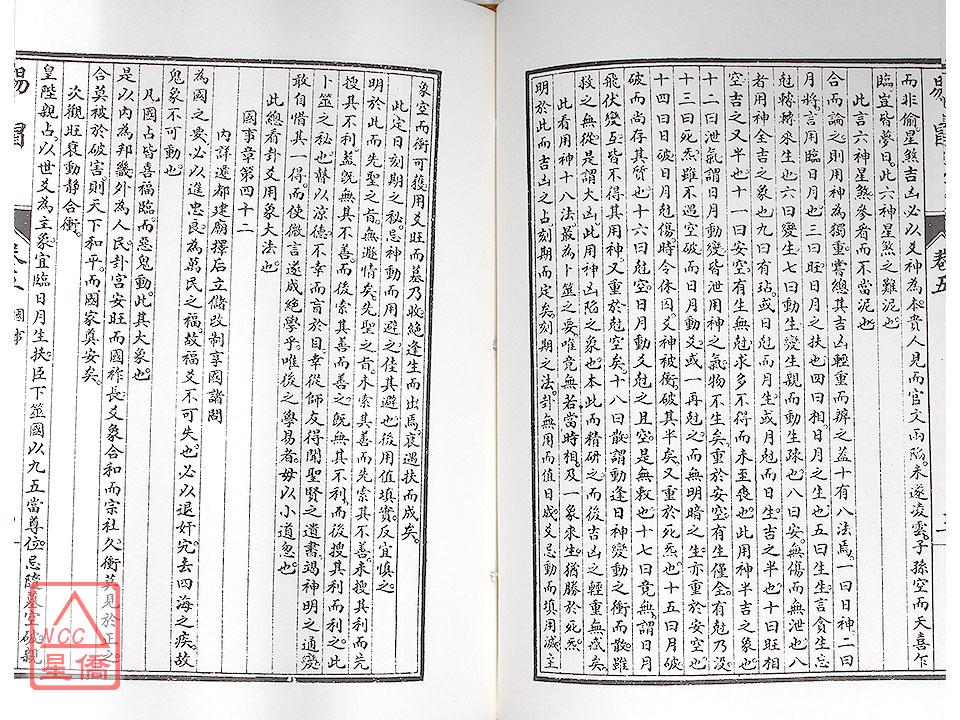 而非偷星煞吉凶必以爻神為
貴人見而官文雨陷未遂凌雲子孫空而天喜乍
臨豈皆夢日此六神星煞之難泥也
此言六神星煞參看而不當泥也
合而論之則用神為獨重嘗總其吉凶輕重而辨之益十有八法焉一曰日神二曰
月將言用臨日月也三曰旺日月之扶也四曰相日月之生也五曰生生言貪生忘
尅轉來生也六曰變生七曰動生變生親而動生疎也八曰安無傷而無泄也八
者用神全吉之象也九曰有玷或日尅而月生或月尅而日生吉之半也十曰旺相
空吉之又半也十一曰安空有生無尅求多不得而未至喪也此用神半吉之象也
十二曰泄氣謂日月動變皆泄用神之氣物不生矣重於安空有生僅全有尅乃沒
十三曰死炁雖不遇空破而日月動爻或一再尅之而無明暗之生亦重於安空也
十四曰破日月尅傷時令休囚爻神被衝破其半矣又重於死炁也十五曰月破
破而尚存其質也十六曰尅空日月動爻尅之且空是無救也十七曰竟無謂日月
飛伏變互皆不得其用神又重於尅空矣十八曰散謂動逢日神變動之衝而散雖
救之無從是謂大凶此用神凶陷之象也本此而精研之而後吉凶之輕重無惑矣
此看用神十八法最為卜筮之要唯竟無若當時相及一象來生猶勝於死炁
明於此而吉凶之占刻期而定矣刻期之法卦無用而值日成爻忌動而填用滅主
象空而衝可獲用爻旺而墓乃收絕逢生而出焉衰遇扶而成矣
此定日刻期之秘忌神動而用避之佳其避也後用值填實反宜慎之
明於此而先聖之旨無遯情矣先聖之旨未索其善而先索其不善未搜其利而先
搜其不利蓋旣無其不善而後索其善而善之旣無其不利而後搜其利而利之此
卜筮之秘也瞽以涼德不幸而盲於目幸從師友得聞聖賢之遺書竭神明之通變
敢自惜其一得而使微言遂成絕學乎唯後之學易者毋以小道忽也
此總看卦爻用象大法也
國事章第四十二
內詳遷都建廟擇后立儲改制享國諸問
為國之要必以進忠良為萬民之福故福爻不可失也必以退奸宄去四海之疾故
鬼象不可動也
凡國占皆喜福臨而惡鬼動此其大象也
是以內為邦畿外為人民卦宮安旺而國祚長爻象合和而宗社久衝莫見於正之
合莫被於破害則天下和平而國家奠安矣
次觀旺衰動靜合衝
皇陛親占以世爻為主象宜臨日月生扶臣下筮國以九五當尊位忌隨墓空破親
卷五
國事
NCC
星僑